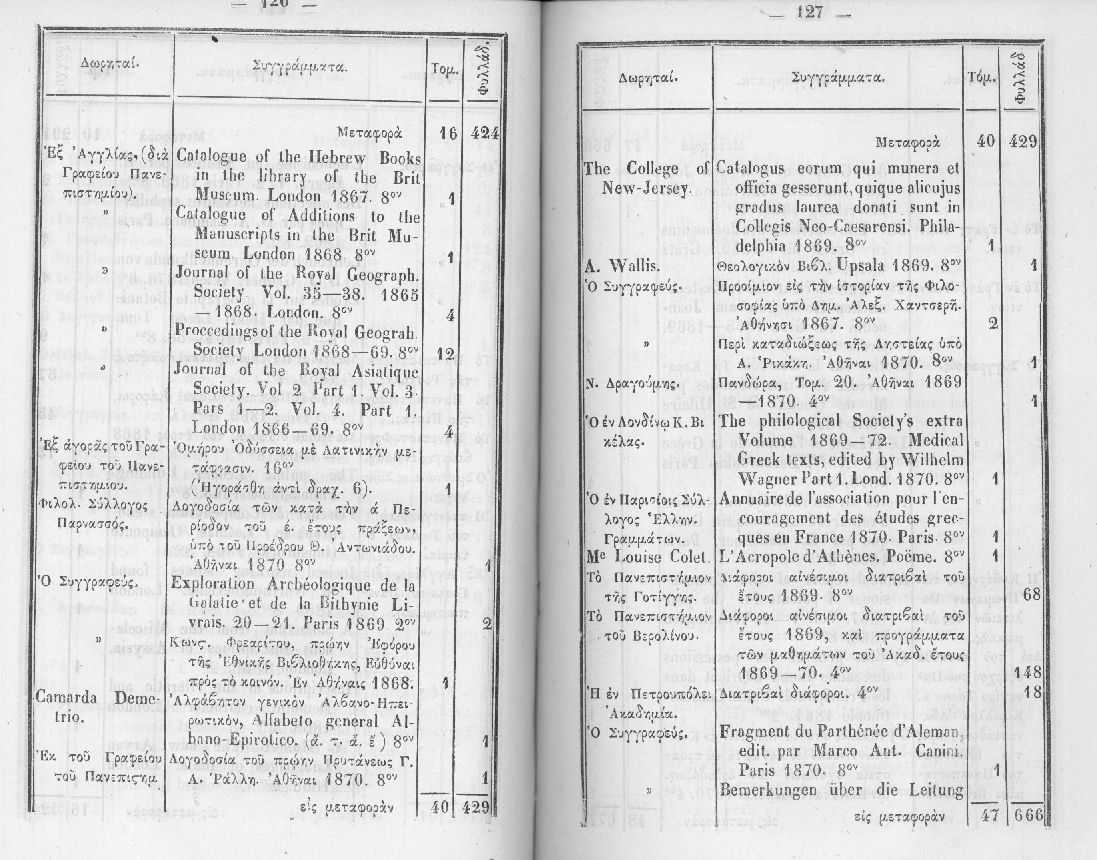 — 126 —
Δωρηταί. Συγγράμματα. Τομ. Φυλλάδ.
Μεταφορὰ 16 424
Ἐξ Ἀγγλίας, (διὰ Catalogue of the Hebrew Books
Γραφείου Πανε- in the library of the Brit
πιστημίου). Museum. London 1867. 8ον 1
» Catalogue of Additions to the
Manuscripts in the Brit Mu-
seum London 1868. 8ον 1
» Journal of the Royal Geograph.
Society Vol. 35—38. 1865
— 1868. London. 8ον 4
» Proceedings of the Royal Geograh.
Society London 1868—69. 8ον 12
» Journal of the Royal Asiatique
Society. Vol 2 Part 1. Vol. 3.
Pars 1—2. Vol. 4. Part 1.
London 1866—69. 8ον 4
Ἐξ ἀγορᾶς τοῦ Γρα- Ὁμήρου Ὀδύσσεια μὲ Λατινικὴν με-
φείου τοῦ Πανε- τάφρασιν. 16ον
πιστημίου. (Ἠγοράσθη ἀντὶ δραχ. 6). 1
Φιλολ. Σύλλογος Λογοδοσία τῶν κατὰ τὴν ά Πε-
Παρνασσός. ρίοδον τοῦ έ. ἔτους πράξεων,
ὑπὸ τοῦ Προέδρου Θ. Ἀντωνιάδου.
Ἀθῆναι 1870 8ον 1
Ὁ Συγγραφεύς. Exploration Archéologique de la
Galatie et de la Bithynie Li-
vrais. 20—21. Paris 1869. 2ον 2
» Κωνς. Φρεαρίτου, πρώην Ἐφόρου
τῆς Ἐθνικῆς Βιβλιοθήκης, Εὐθύναι
πρὸς τὸ κοινόν. Ἐν Ἀθήναις 1868. 1
Camarda Deme- Ἀλφάβητον γενικὸν Ἀλβανο-Ηπει-
trio. ρωτικὸν, Alfabeto general Al-
bano-Epirotico. (ά. τ. ά. ἔ) 8ον 1
Ἐκ τοῦ Γραφείου Λογοδοσία τοῦ πρώην Πρυτάνεως Γ.
τοῦ Πανεπιςημ. Α. Ῥάλλη. Ἀθῆναι 1870. 8ον 1
εἰς μεταφορὰν 40 429
— 127 —
Δωρηταί. Συγγράμματα. Τόμ. Φυλλάδ
Μεταφορὰ 40 429
The College of Catalogus eorum qui munera et
New-Jersey. officia gesserunt, quique alicujus
gradus laurea donati sunt in
Collegis Neo-Caesarensi. Phila-
delphia 1869. 8ον 1
A. Wallis. Θεολογικὸν Βιβλ. Upsala 1869. 8ον 1
Ὁ Συγγραφεύς. Προοίμιον εἰς τὴν ἱστορίαν τῆς Φιλο-
σοφίας ὑπὸ Δημ. Ἀλεξ. Χαντσερῆ.
Ἀθήνησι 1867. 8ον 2
» Περὶ καταδιώξεως τῆς Ληστείας ὑπὸ
Α. Ῥικάκη. Ἀθῆναι 1870. 8ον 1
Ν. Δραγούμης. Πανδώρα, Τομ. 20. Ἀθῆναι 1869
—1870. 4ον 1
Ὁ ἐν Λονδίνῳ Κ. Βι The philological Society's extra
κέλας. Volume 1869—72. Medical
Greek texts, edited by Wilhelm
Wagner Part 1. Lond. 1870. 8ον 1
Ὁ ἐν Παρισίοις Σύλ- Annuaire de l'association pour l'en-
λογος Ἑλλην. couragement des études grec-
Γραμμάτων. ques en France 1870. Paris. 8ον 1
Me Louise Colet. L'Acropole d'Athènes. Poëme. 8ον 1
Τὸ Πανεπιστήμιον Διάφοροι αἰνέσιμοι διατριβαὶ τοῦ
τῆς Γοτίγγης. ἔτους 1869. 8ον 68
Τὸ Πανεπιστήμιον Διάφοροι αἰνέσιμοι διατριβαὶ τοῦ
τοῦ Βερολίνου. ἔτους 1869, καὶ προγράμματα
τῶν μαθημάτων τοῦ Ἀκαδ. ἔτους
1869—70. 4ον 148
Ἡ ἐν Πετρουπόλει Διατριβαὶ διάφοροι. 4ον 18
Ἀκαδημία.
Ὁ Συγγραφεύς. Fragment du Parthénée d'Aleman,
edit. par Marco Ant. Canini.
Paris 1870. 8ον 1
» Bemerkungen über die Leitung
εἰς μεταφορὰν 47 666